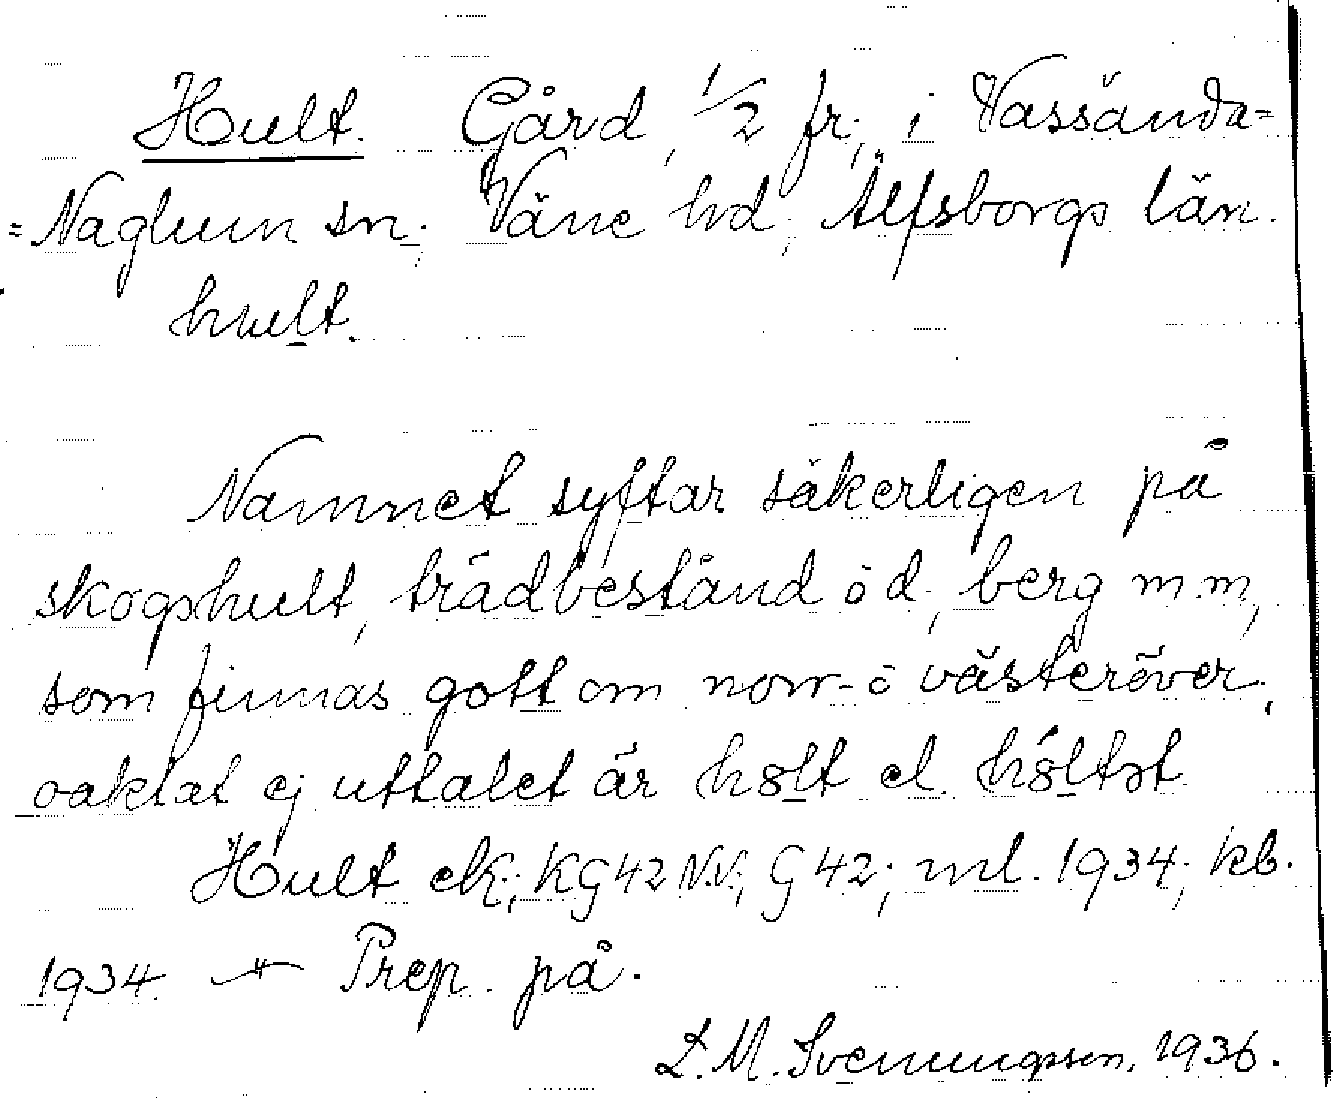 Hult. Gård, 1/2 fr., i Vassända=
=Naglum sn; Väne hd; Älfsborgs län.
hult.
Namnet syftar säkerligen på
skogshult, trädbestånd o d, berg m.m,
som finnas gott om norr- o västeröver,
oaktat ej uttalet är hölt el. höltət
Hult ek; KG 42 N.V; G 42; ml. 1934; kb.
1934. Prep. på.
L. M. Svenungsson, 1936.